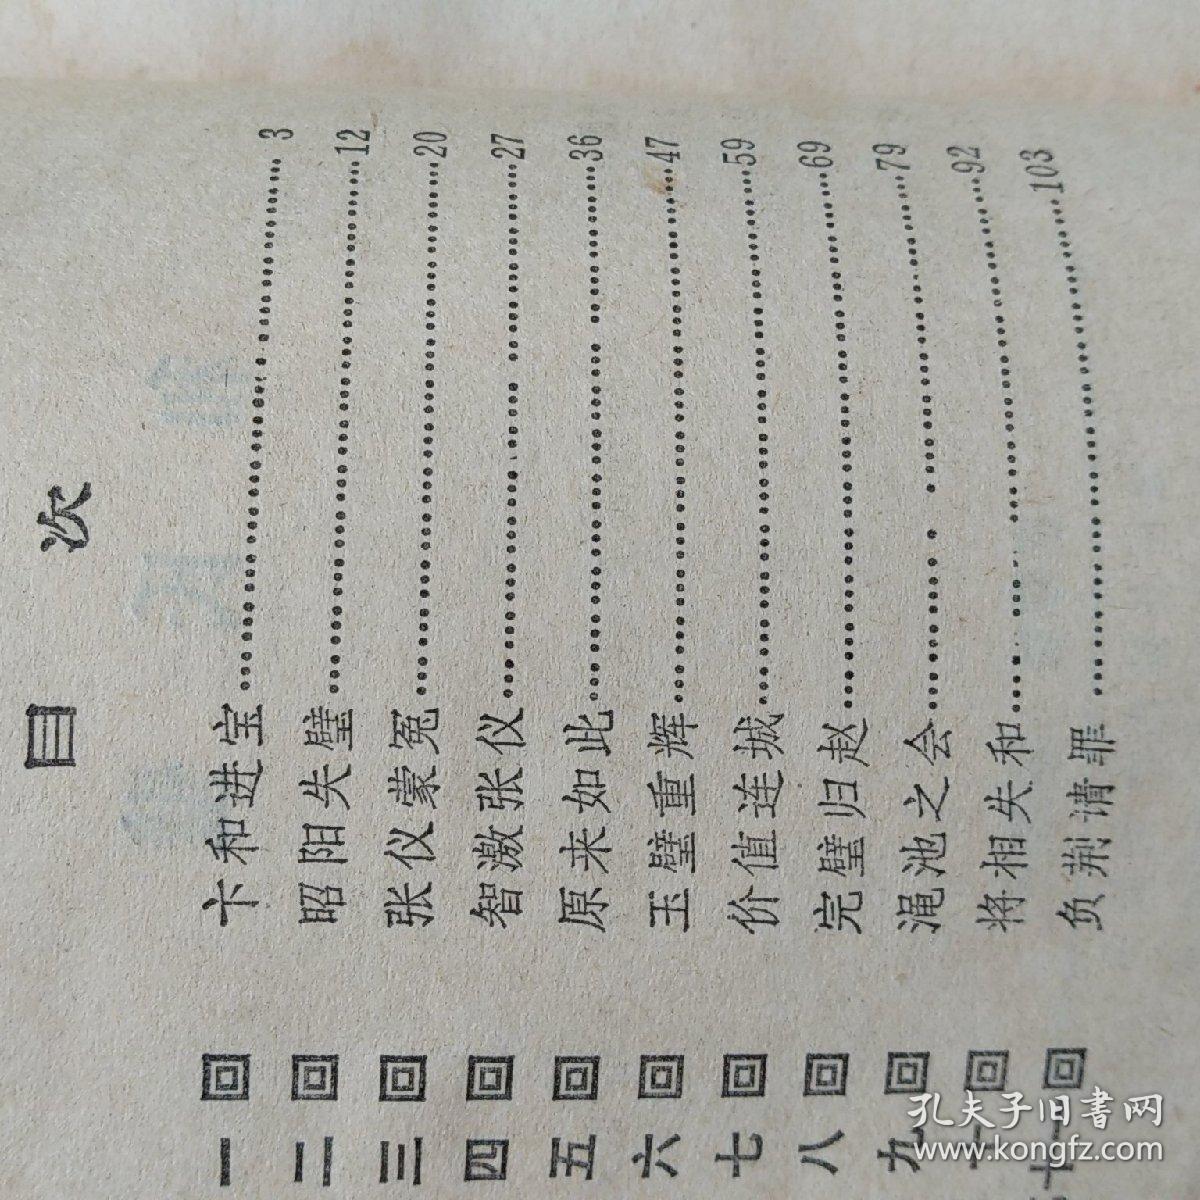 目 次
一回 卞和进宝 3
二回 昭阳失璧 12
三回 张仪蒙冤 20
四回 智激张仪 27
五回 原来如此 36
六回 玉璧重辉 47
七回 价值连城 59
八回 完璧归赵 69
九回 渑池之会 79
回 将相失和 92
十一回 负荆请罪 103
孔夫子旧书网
www.kongfz.com